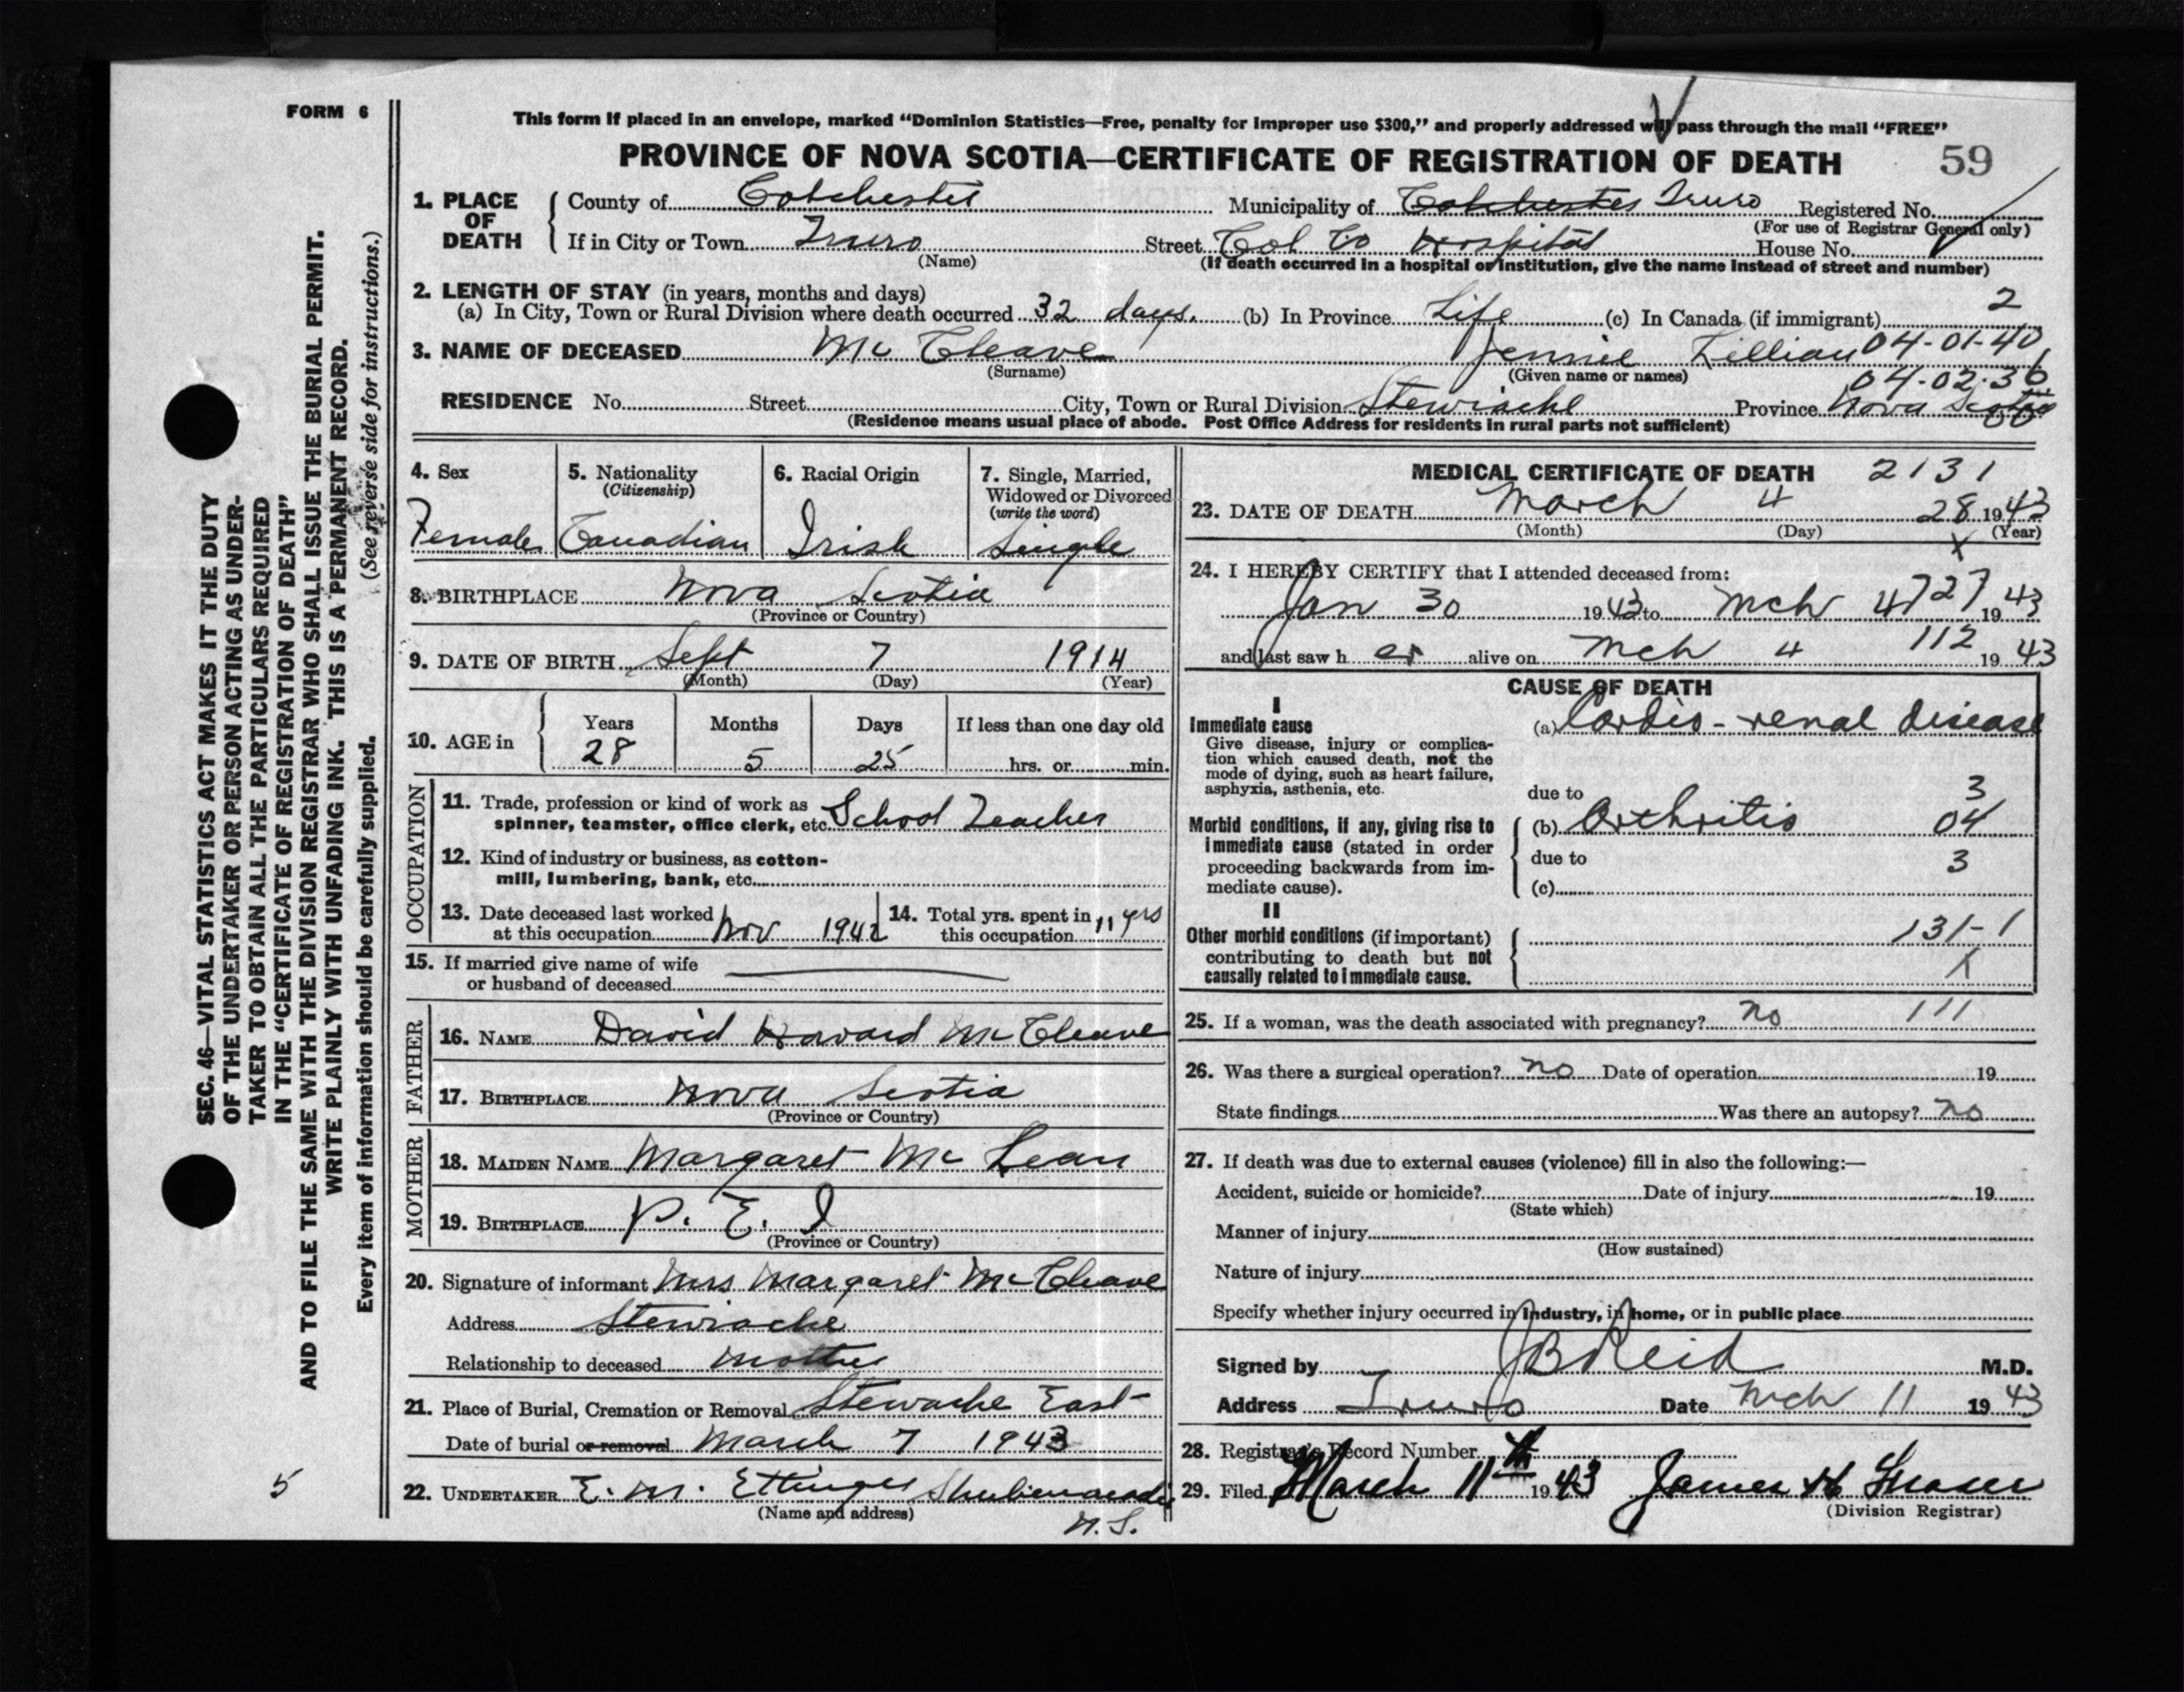 FORM 6
This form if placed in an envelope, marked "Dominion Statistics—Free, penalty for improper use $300," and properly addressed will pass through the mail "FREE"
PROVINCE OF NOVA SCOTIA—CERTIFICATE OF REGISTRATION OF DEATH 59
1. PLACE OF DEATH County of Colchester Municipality of Colchester Truro Registered No.
(For use of Registrar General only)
If in City or Town Truro Street Col Co Hospital House No.
(Name) (If death occurred in a hospital or institution, give the name instead of street and number)
2. LENGTH OF STAY (in years, months and days)
(a) In City, Town or Rural Division where death occurred 32 days. (b) In Province Life (c) In Canada (if immigrant) 2
3. NAME OF DECEASED Mc Cleave Jennie Lillian 04-01-40
(Surname) (Given name or names) 04-02-36
RESIDENCE No. Street City, Town or Rural Division Stewiacke Province Nova Scotia
(Residence means usual place of abode. Post Office Address for residents in rural parts not sufficient)
4. Sex 5. Nationality (Citizenship) 6. Racial Origin 7. Single, Married, Widowed or Divorced (write the word)
Female Canadian Irish Single
8. BIRTHPLACE Nova Scotia
(Province or Country)
9. DATE OF BIRTH Sept 7 1914
(Month) (Day) (Year)
10. AGE in Years Months Days If less than one day old
28 5 25 hrs. or min.
OCCUPATION
11. Trade, profession or kind of work as spinner, teamster, office clerk, etc. School Teacher
12. Kind of industry or business, as cotton-mill, lumbering, bank, etc.
13. Date deceased last worked at this occupation Nov 1942 14. Total yrs. spent in this occupation 11 yrs
15. If married give name of wife or husband of deceased
FATHER
16. NAME David Howard Mc Cleave
17. BIRTHPLACE Nova Scotia
(Province or Country)
MOTHER
18. MAIDEN NAME Margaret Mc Lean
19. BIRTHPLACE P. E. I
(Province or Country)
20. Signature of informant Mrs Margaret Mc Cleave
Address Stewiacke
Relationship to deceased Mother
21. Place of Burial, Cremation or Removal Stewiacke East
Date of burial or removal March 7 1943
22. UNDERTAKER E. M. Ettinger Shubenacadie
(Name and address) N.S.
MEDICAL CERTIFICATE OF DEATH 2131
23. DATE OF DEATH March 4 28 1943
(Month) (Day) X (Year)
24. I HEREBY CERTIFY that I attended deceased from:
Jan 30 1943 to Mch 4 727 1943
and last saw h er alive on Mch 4 112 1943
CAUSE OF DEATH
I
Immediate cause (a) Cardio-renal disease
Give disease, injury or complication which caused death, not the mode of dying, such as heart failure, asphyxia, asthenia, etc.
due to 3
Morbid conditions, if any, giving rise to immediate cause (stated in order proceeding backwards from immediate cause).
(b) Arthritis 04
due to 3
(c)
II
Other morbid conditions (if important) contributing to death but not causally related to immediate cause.
131-1
X
25. If a woman, was the death associated with pregnancy? no 111
26. Was there a surgical operation? no Date of operation 19
State findings Was there an autopsy? no
27. If death was due to external causes (violence) fill in also the following:—
Accident, suicide or homicide? Date of injury 19
(State which)
Manner of injury
(How sustained)
Nature of injury
Specify whether injury occurred in industry, in home, or in public place
Signed by J B Reid M.D.
Address Truro Date Mch 11 1943
28. Registrar's Record Number
29. Filed March 11th 1943 James H Fraser
(Division Registrar)
SEC. 46—VITAL STATISTICS ACT MAKES IT THE DUTY
OF THE UNDERTAKER OR PERSON ACTING AS UNDER-
TAKER TO OBTAIN ALL THE PARTICULARS REQUIRED
IN THE "CERTIFICATE OF REGISTRATION OF DEATH"
AND TO FILE THE SAME WITH THE DIVISION REGISTRAR WHO SHALL ISSUE THE BURIAL PERMIT.
WRITE PLAINLY WITH UNFADING INK. THIS IS A PERMANENT RECORD.
Every item of information should be carefully supplied. (See reverse side for instructions.)
5